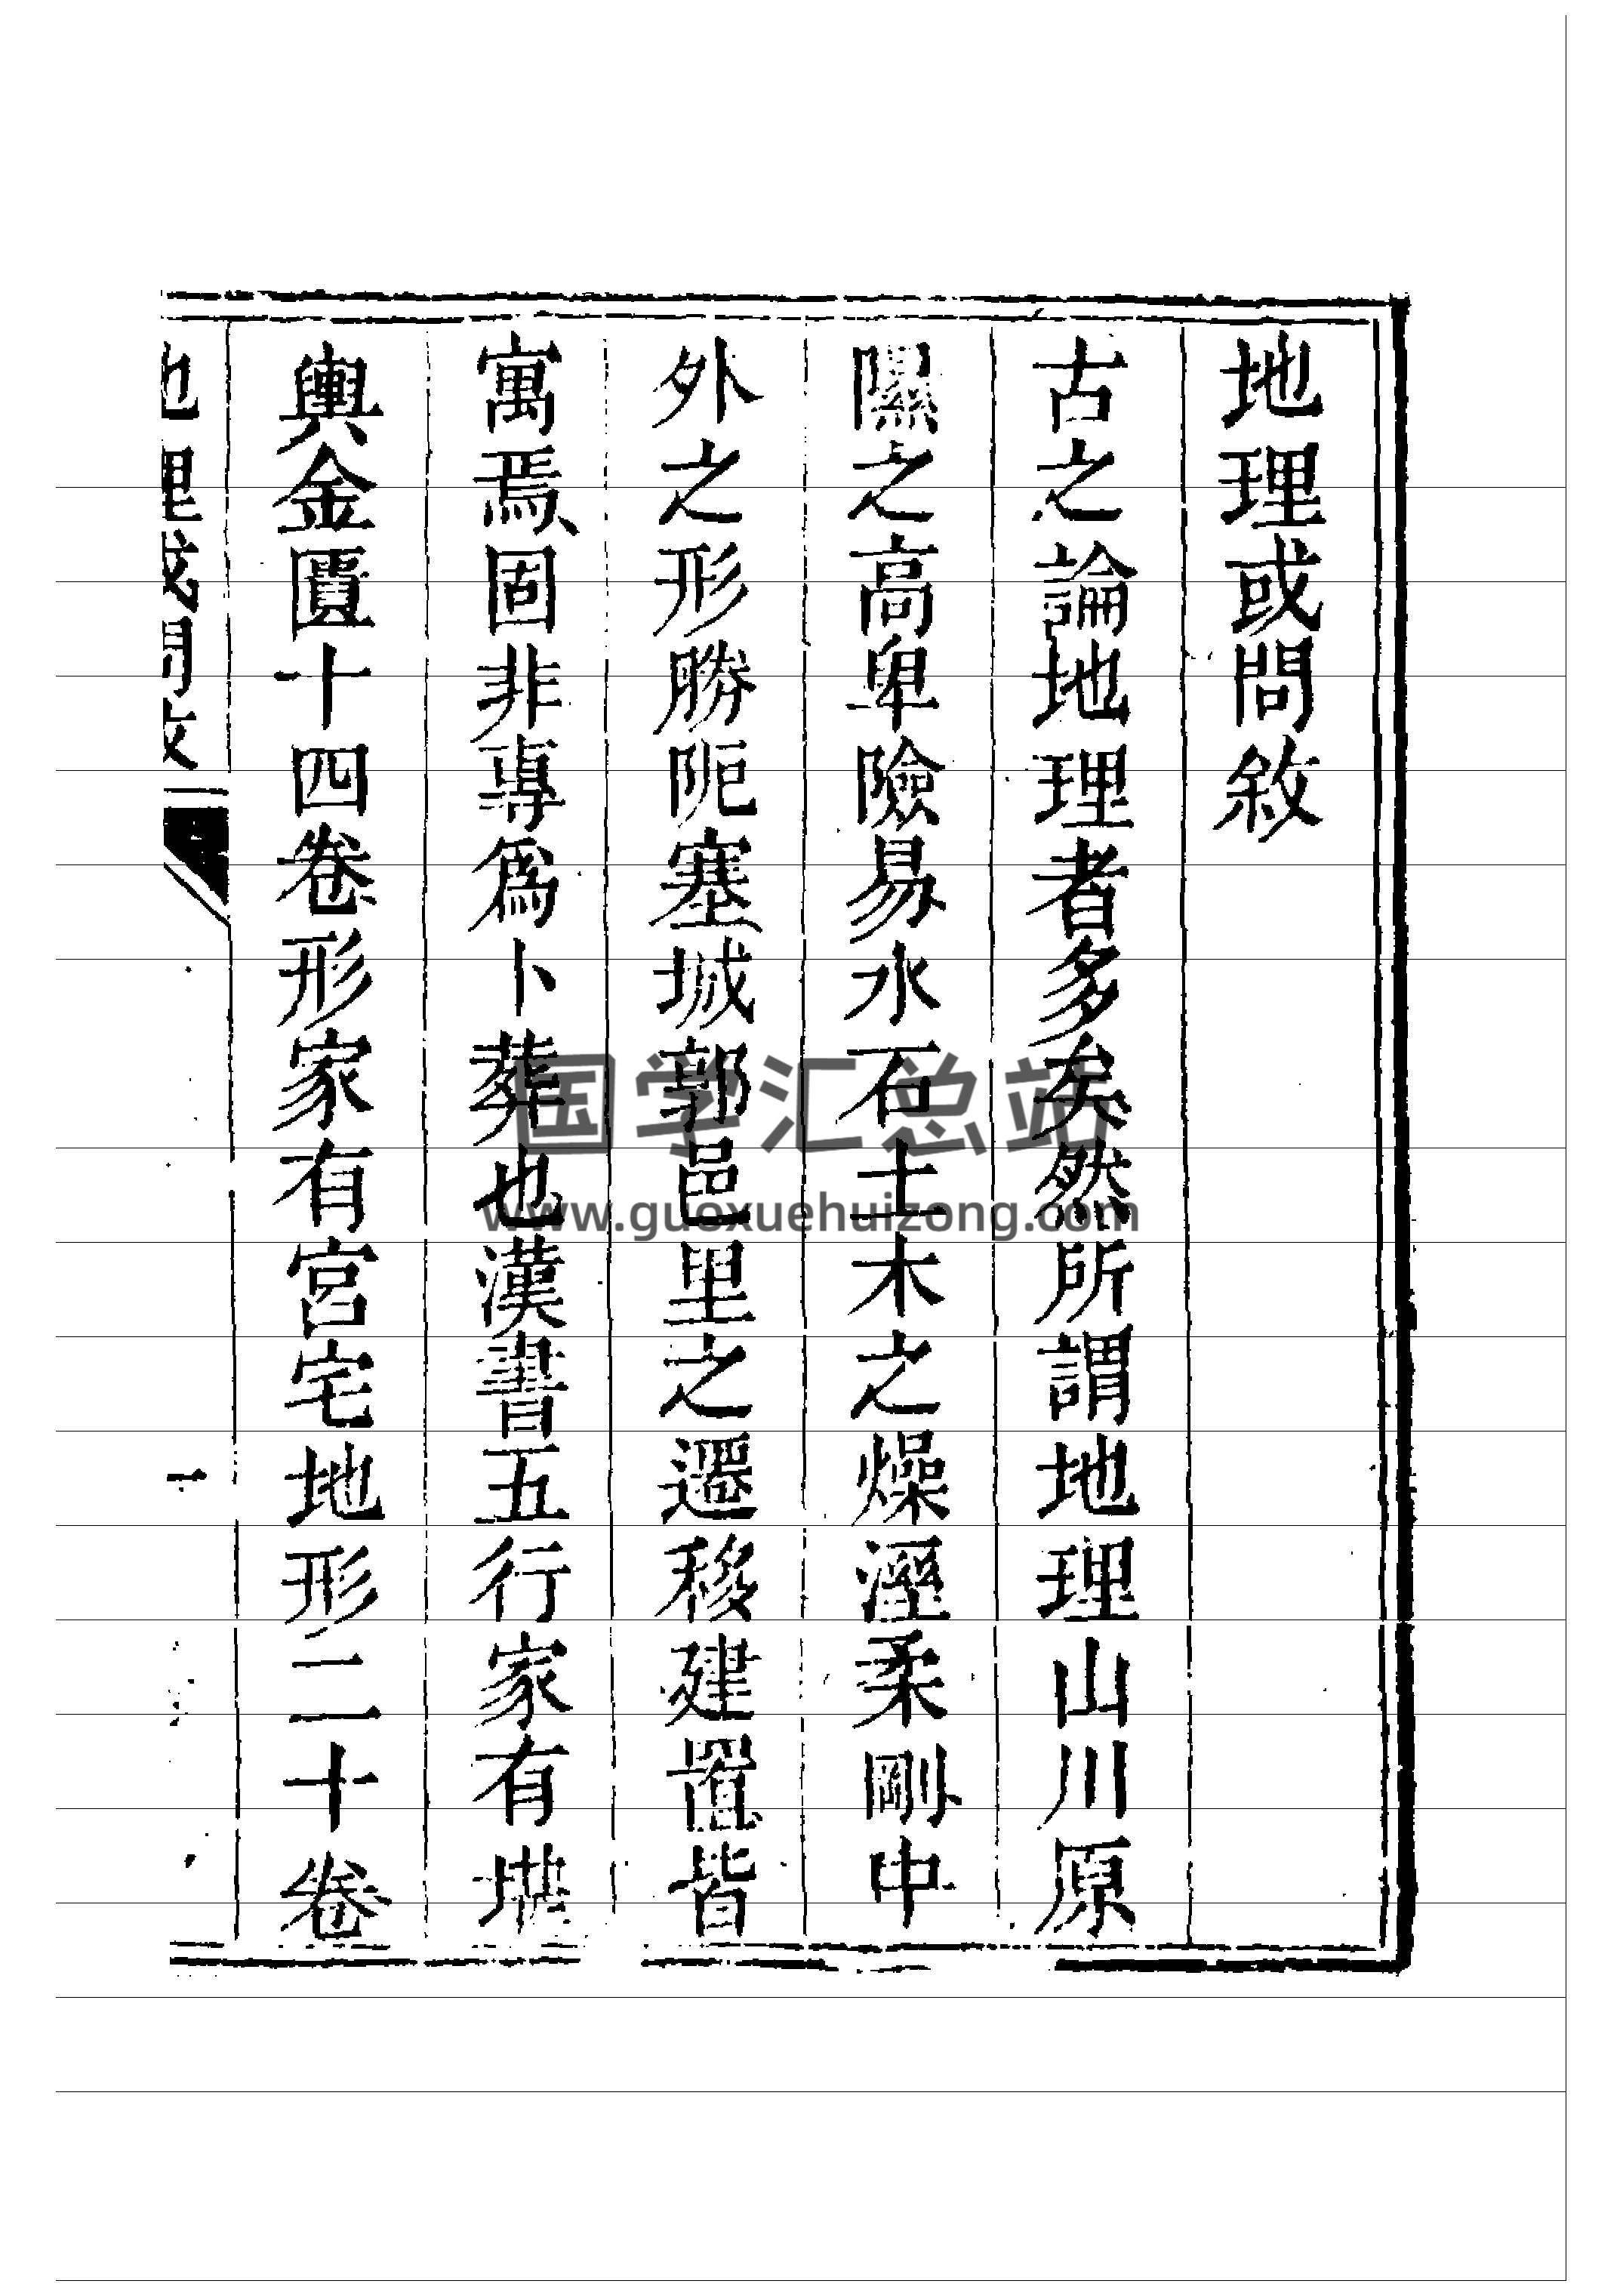 地理或問敘
古之論地理者多矣然所謂地理山川原
隰之高卑險易水石土木之燥溼柔剛中
外之形勝阨塞城郭邑里之遷移建置皆
寓焉固非專爲卜葬也漢書五行家有堪
輿金匱十四卷形家有宮宅地形二十卷
地理或問敘
一
国学汇总站
www.guoxuehuizong.com